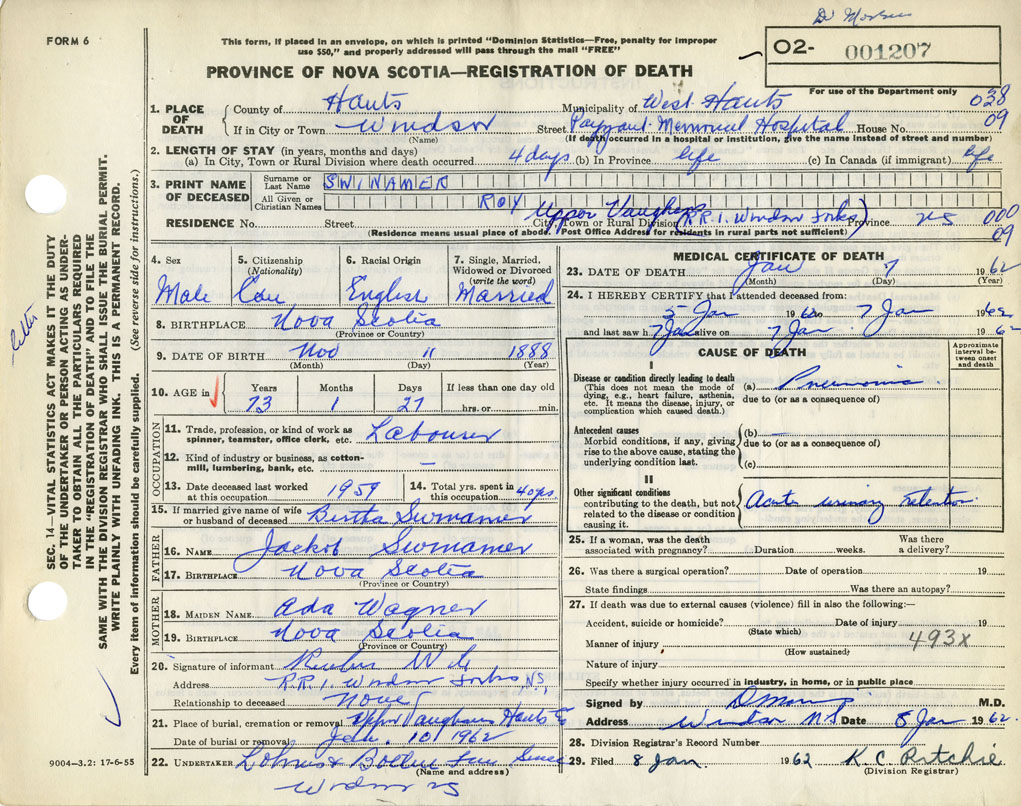 Dr Morris
FORM 6
This form, if placed in an envelope, on which is printed "Dominion Statistics—Free, penalty for improper
use $50," and properly addressed will pass through the mail "FREE"
O2- 001207
PROVINCE OF NOVA SCOTIA—REGISTRATION OF DEATH
For use of the Department only
1. PLACE OF DEATH County of Hants Municipality of West Hants 038
If in City or Town Windsor Street Payzant Memorial Hospital House No. 09
(Name) (If death occurred in a hospital or institution, give the name instead of street and number)
2. LENGTH OF STAY (in years, months and days)
(a) In City, Town or Rural Division where death occurred 4 days (b) In Province life (c) In Canada (if immigrant) life
3. PRINT NAME OF DECEASED Surname or Last Name SWINAMER
All Given or Christian Names ROY
RESIDENCE No. Street City, Town or Rural Division Upper Vaughans (R.R.1. Windsor Forks) Province NS 000
(Residence means usual place of abode. Post Office Address for residents in rural parts not sufficient) 09
4. Sex 5. Citizenship (Nationality) 6. Racial Origin 7. Single, Married, Widowed or Divorced (write the word)
Male Can English Married
8. BIRTHPLACE Nova Scotia
(Province or Country)
9. DATE OF BIRTH Nov 11 1888
(Month) (Day) (Year)
10. AGE in Years Months Days If less than one day old
73 1 27 hrs. or min.
OCCUPATION
11. Trade, profession, or kind of work as spinner, teamster, office clerk, etc. Labourer
12. Kind of industry or business, as cotton-mill, lumbering, bank, etc. —
13. Date deceased last worked at this occupation 1959 14. Total yrs. spent in this occupation 40 yrs.
15. If married give name of wife or husband of deceased Bertha Swinamer
FATHER
16. NAME Jackob Swinamer
17. BIRTHPLACE Nova Scotia
(Province or Country)
MOTHER
18. MAIDEN NAME Ada Wagner
19. BIRTHPLACE Nova Scotia
(Province or Country)
20. Signature of informant Reuben
Address R.R.1. Windsor Forks, N.S.
Relationship to deceased None
21. Place of burial, cremation or removal Upper Vaughans Hants Co
Date of burial or removal Jan. 10 1962
22. UNDERTAKER Lohnes &
(Name and address)
Windsor NS
9004—3.2: 17-6-55
MEDICAL CERTIFICATE OF DEATH
23. DATE OF DEATH Jan 7 1962
(Month) (Day) (Year)
24. I HEREBY CERTIFY that I attended deceased from:
5 Jan 1962 to 7 Jan 1962
and last saw h alive on 7 Jan 1962
CAUSE OF DEATH
Approximate interval between onset and death
I
Disease or condition directly leading to death (a) Pneumonia
(This does not mean the mode of dying, e.g., heart failure, asthenia, etc. It means the disease, injury, or complication which caused death.)
due to (or as a consequence of)
Antecedent causes (b) —
Morbid conditions, if any, giving rise to the above cause, stating the underlying condition last.
due to (or as a consequence of)
(c)
II
Other significant conditions Acute urinary retention
contributing to the death, but not related to the disease or condition causing it.
25. If a woman, was the death associated with pregnancy? Duration weeks. Was there a delivery?
26. Was there a surgical operation? Date of operation 19
State findings Was there an autopsy?
27. If death was due to external causes (violence) fill in also the following:—
Accident, suicide or homicide? Date of injury 19
(State which)
Manner of injury 493X
(How sustained)
Nature of injury
Specify whether injury occurred in industry, in home, or in public place
Signed by D Morris M.D.
Address Windsor N.S Date 8 Jan 1962
28. Division Registrar's Record Number
29. Filed 8 Jan. 1962 K. C. Ritchie
(Division Registrar)
SEC. 14—VITAL STATISTICS ACT MAKES IT THE DUTY
OF THE UNDERTAKER OR PERSON ACTING AS UNDER-
TAKER TO OBTAIN ALL THE PARTICULARS REQUIRED
IN THE "REGISTRATION OF DEATH" AND TO FILE THE
SAME WITH THE DIVISION REGISTRAR WHO SHALL ISSUE THE BURIAL PERMIT.
WRITE PLAINLY WITH UNFADING INK. THIS IS A PERMANENT RECORD.
Every item of information should be carefully supplied. (See reverse side for instructions.)